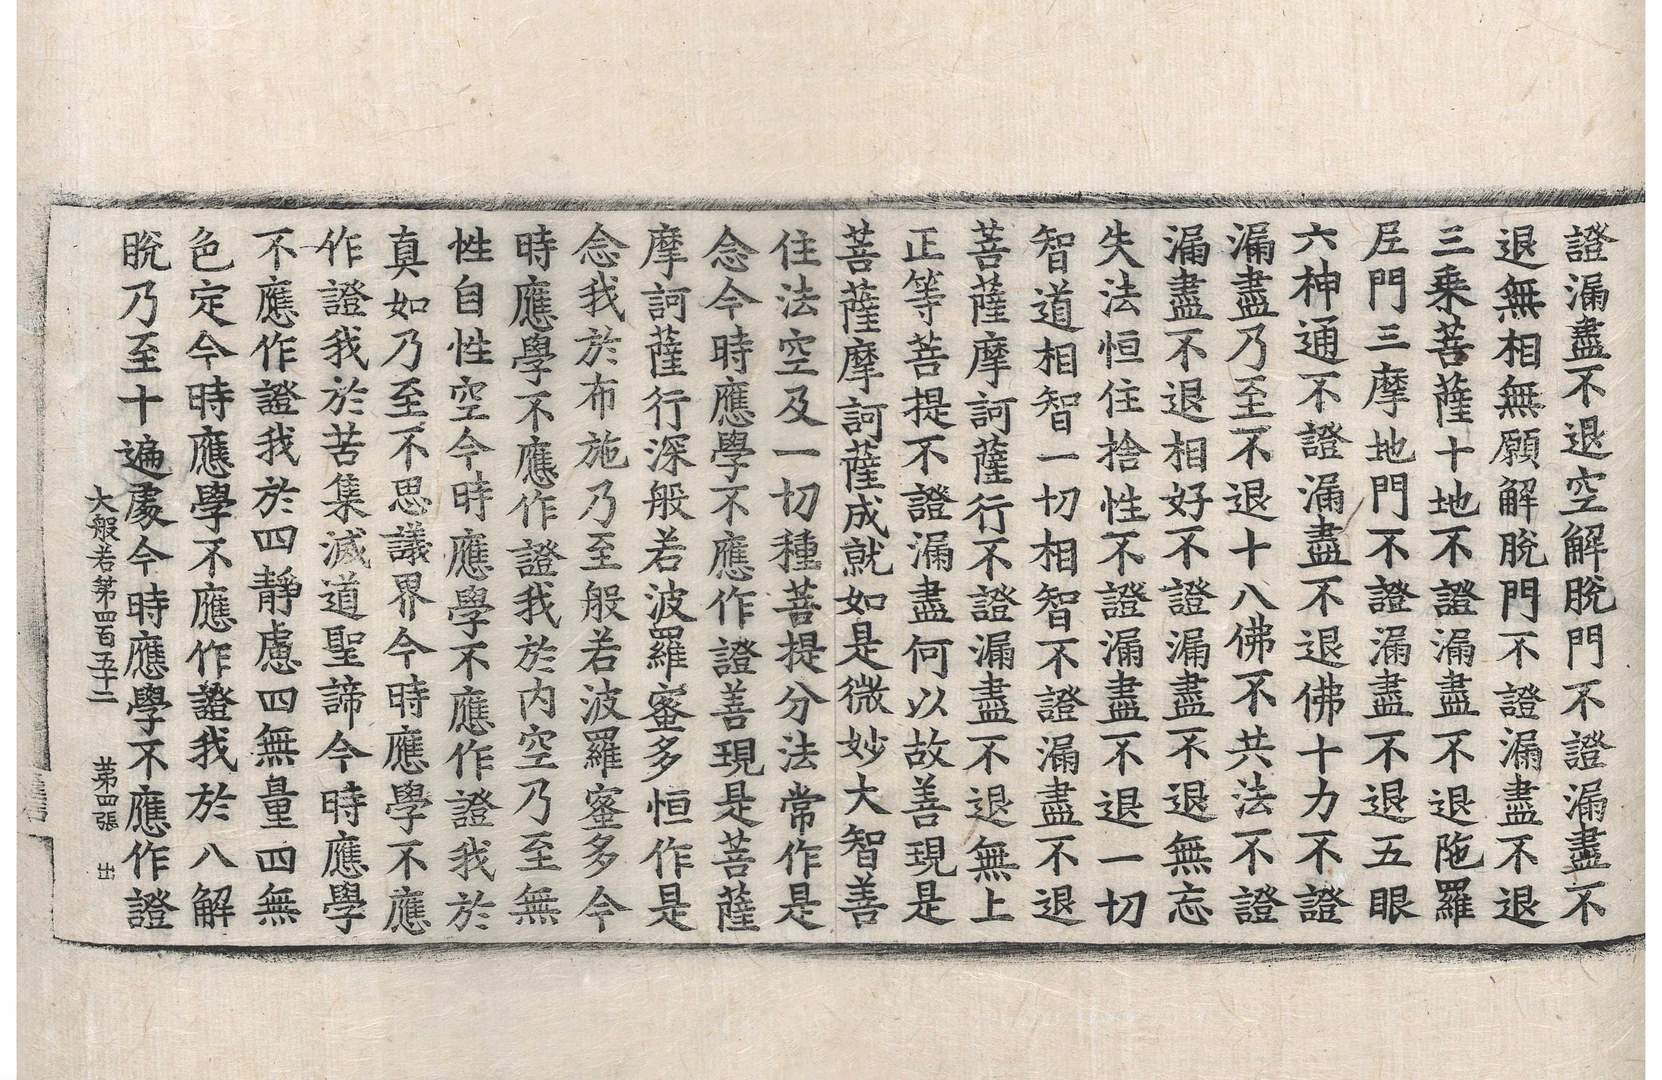 證漏盡不退空解脫門不證漏盡不
退無相無願解脫門不證漏盡不退
三乘菩薩十地不證漏盡不退陁羅
𡰱門三摩地門不證漏盡不退五眼
六神通不證漏盡不退佛十力不證
漏盡乃至不退十八佛不共法不證
漏盡不退相好不證漏盡不退無忘
失法恒住捨性不證漏盡不退一切
智道相智一切相智不證漏盡不退
菩薩摩訶薩行不證漏盡不退無上
正等菩提不證漏盡何以故善現是
菩薩摩訶薩成就如是微妙大智善
住法空及一切種菩提分法常作是
念今時應學不應作證善現是菩薩
摩訶薩行深般若波羅蜜多恒作是
念我於布施乃至般若波羅蜜多今
時應學不應作證我於內空乃至無
性自性空今時應學不應作證我於
真如乃至不思議界今時應學不應
作證我於苦集滅道聖諦今時應學
不應作證我於四靜慮四無量四無
色定今時應學不應作證我於八解
脫乃至十遍處今時應學不應作證
大般若第四百五十二 第四張 出